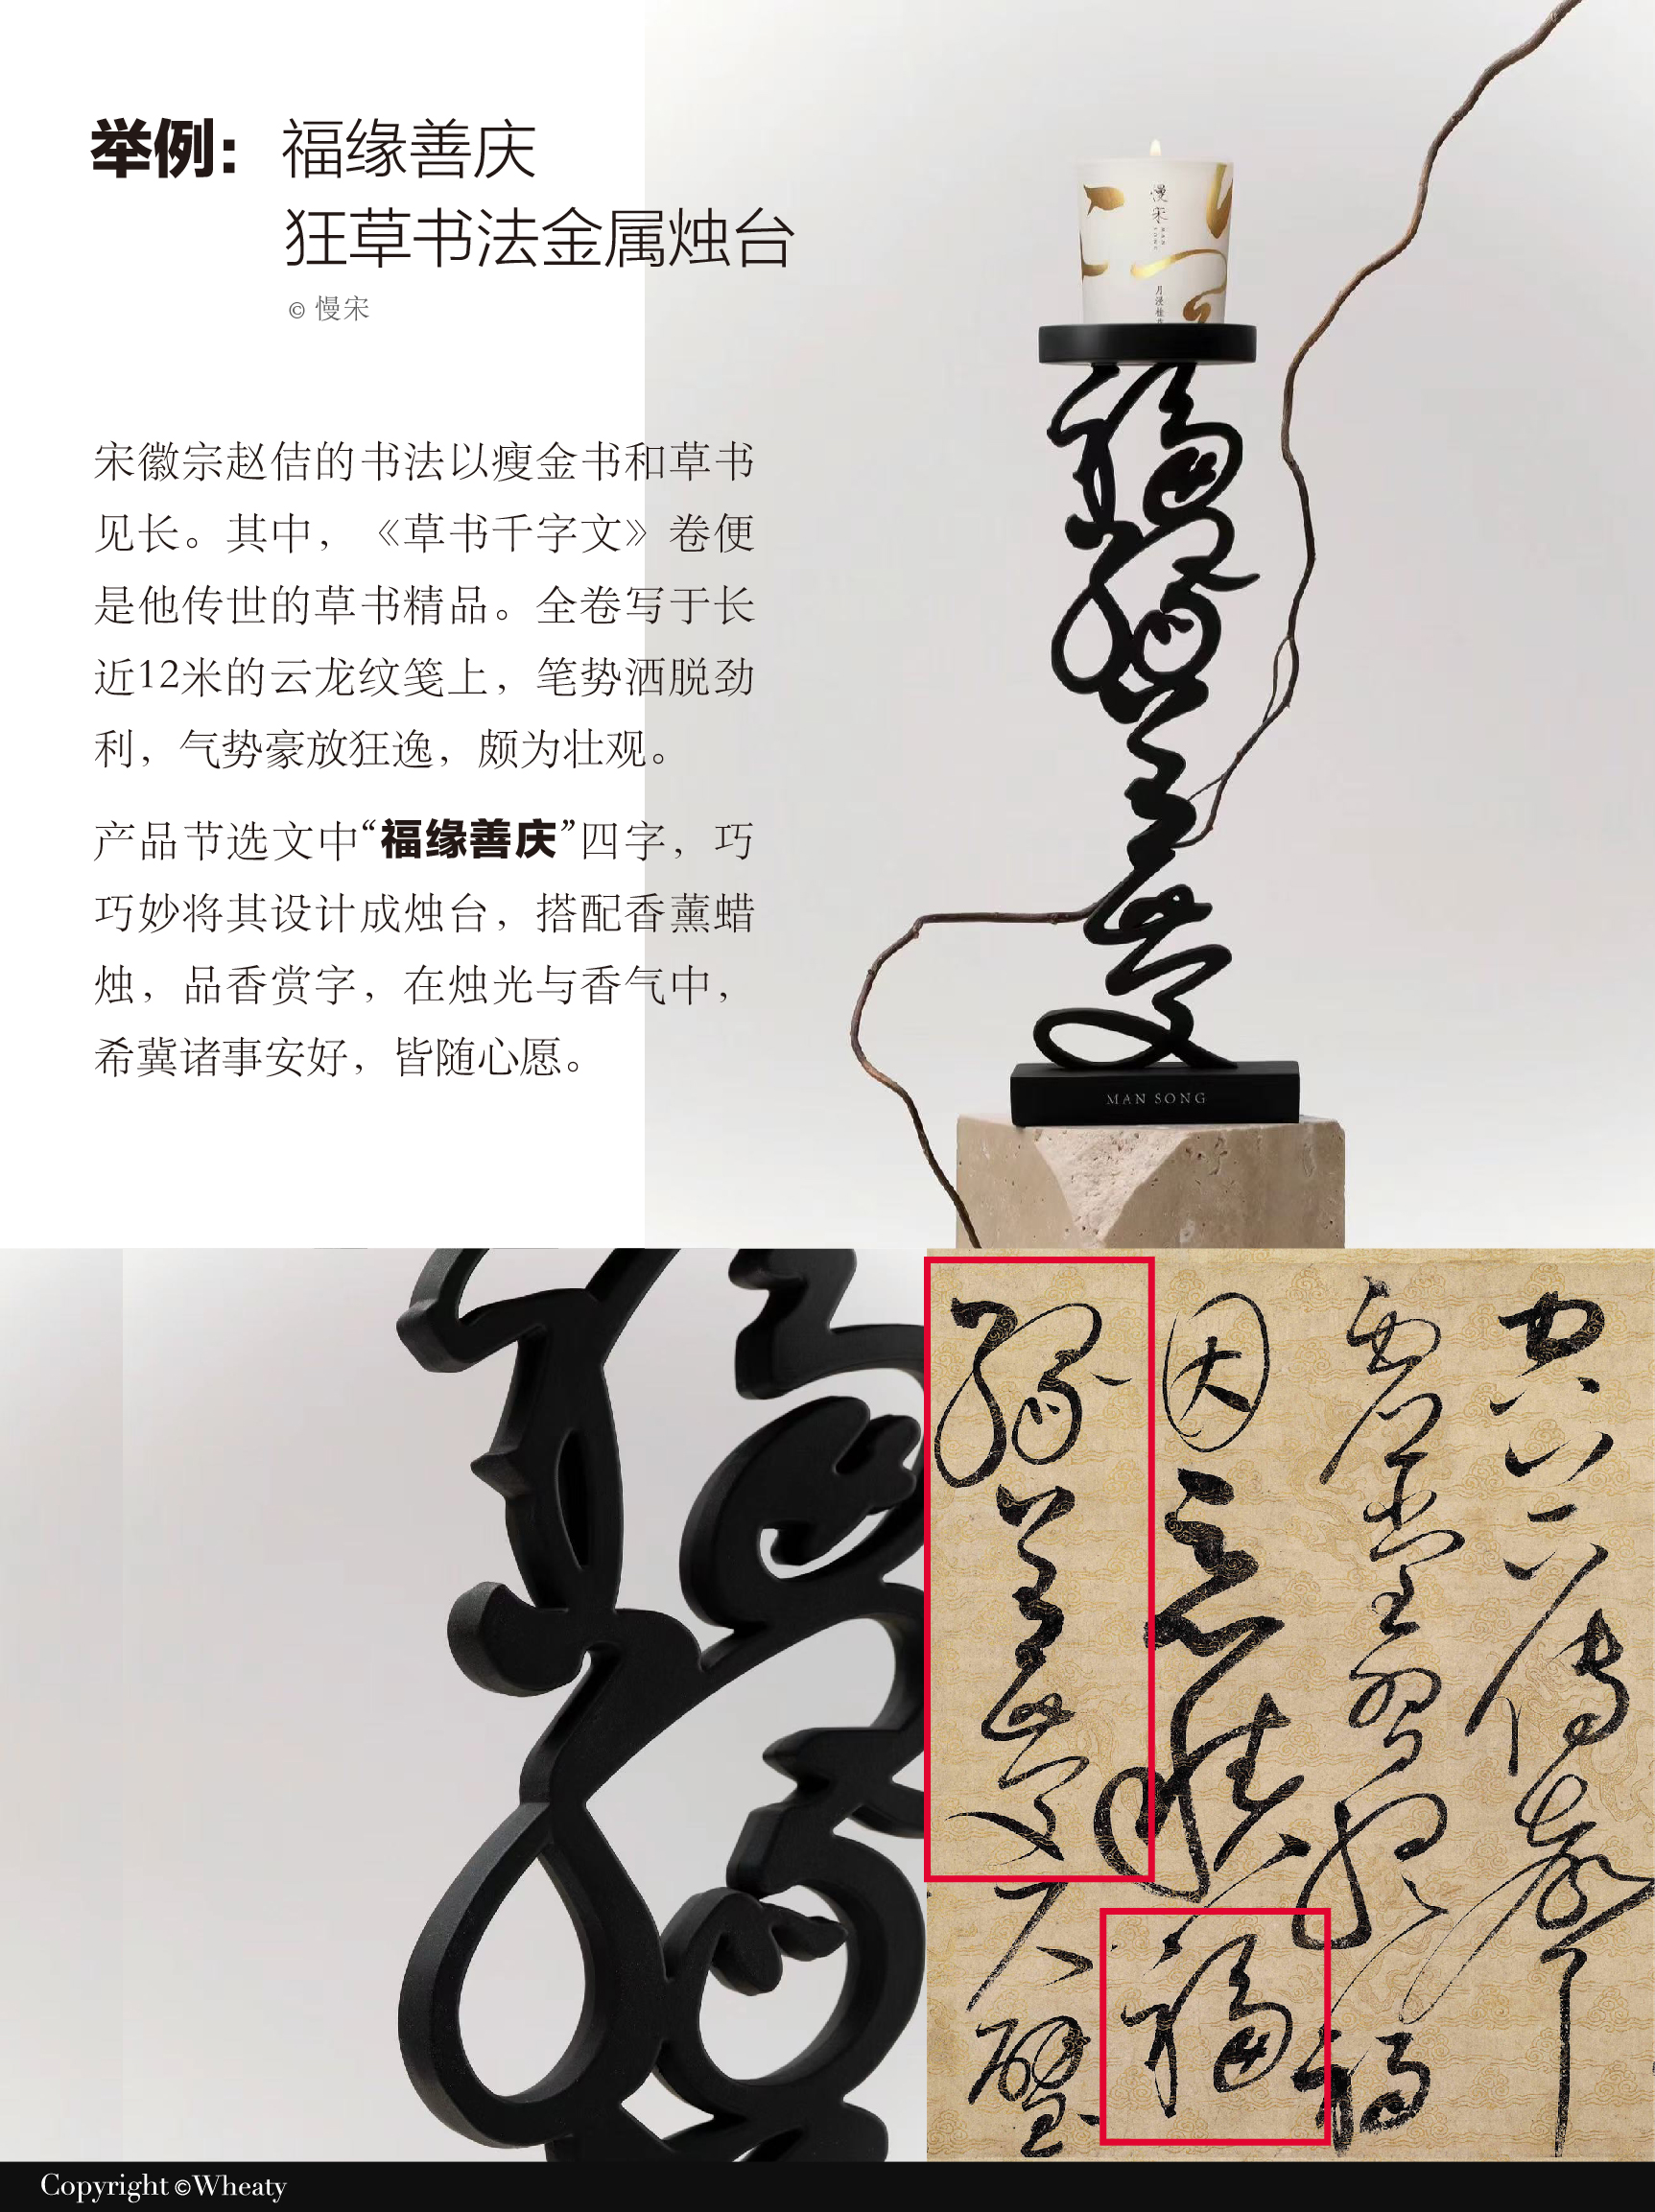 举例：福缘善庆
狂草书法金属烛台
© 慢宋
宋徽宗赵佶的书法以瘦金书和草书
见长。其中，《草书千字文》卷便
是他传世的草书精品。全卷写于长
近12米的云龙纹笺上，笔势洒脱劲
利，气势豪放狂逸，颇为壮观。
产品节选文中“福缘善庆”四字，巧
巧妙将其设计成烛台，搭配香薰蜡
烛，品香赏字，在烛光与香气中，
希冀诸事安好，皆随心愿。
慢宋
MAN SONG
月漫桂
福缘善庆
MAN SONG
谷传声
虚堂习听祸
因恶积福
缘善庆尺璧
Copyright ©Wheaty